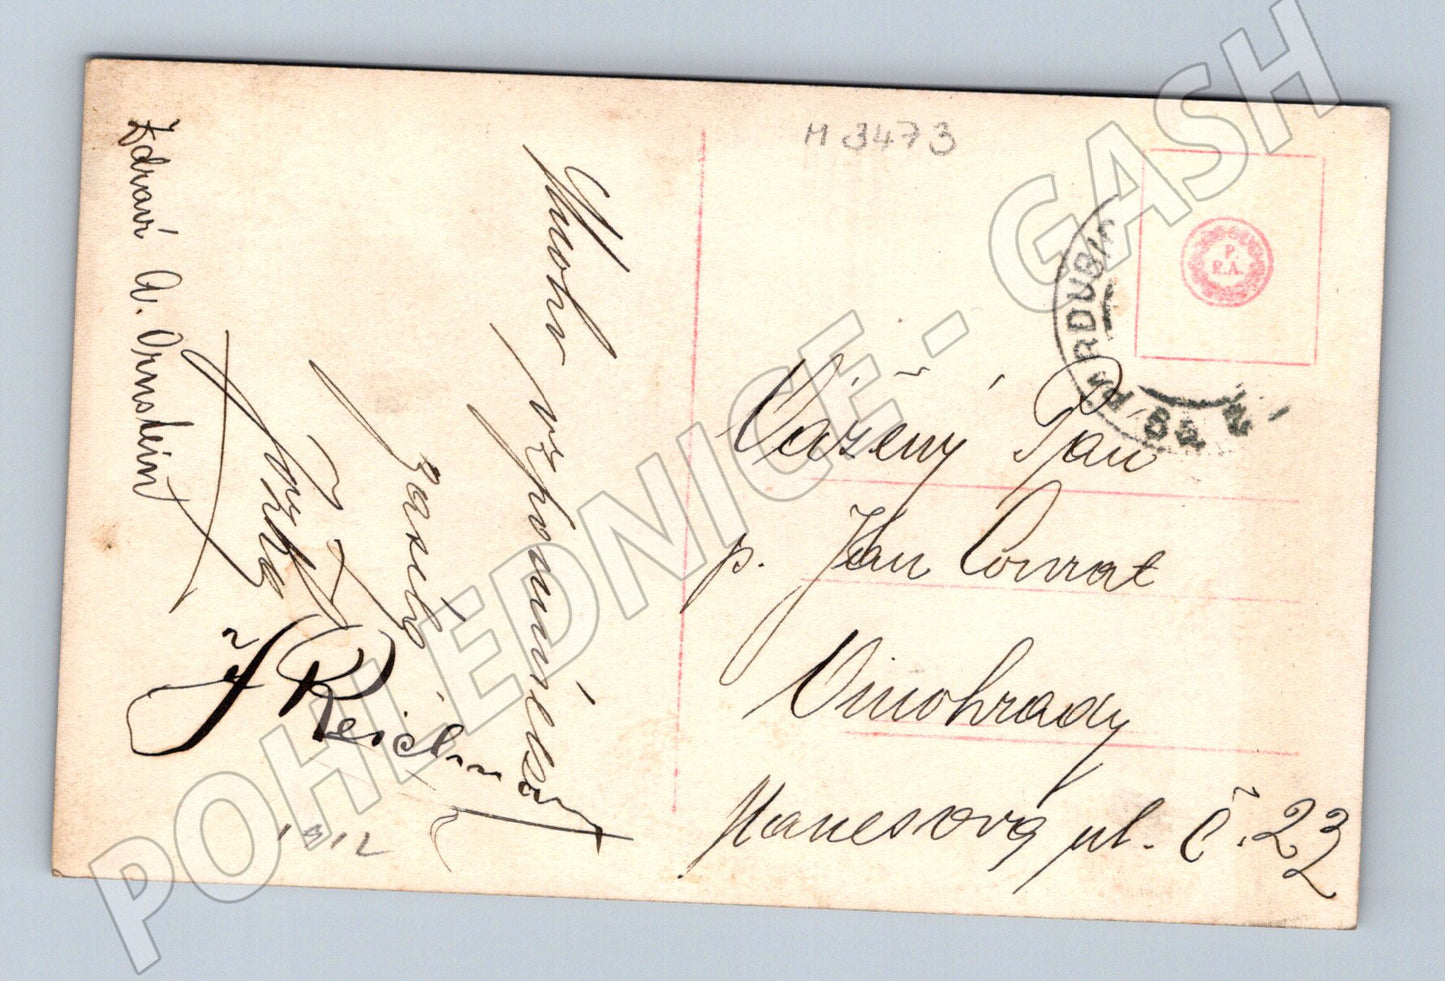 M 3473
P.
R.A.
PARDUBIC
Vážený Pan
p. Jan Conrat
Vinohrady
Manesova ul. č. 22
Mnoho vzpomínek
zasílá
Zdraví A. Ornstein
Reichman
1912
POHLEDNICE - GASH